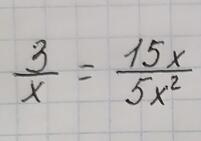 3/x = 15x/5x²